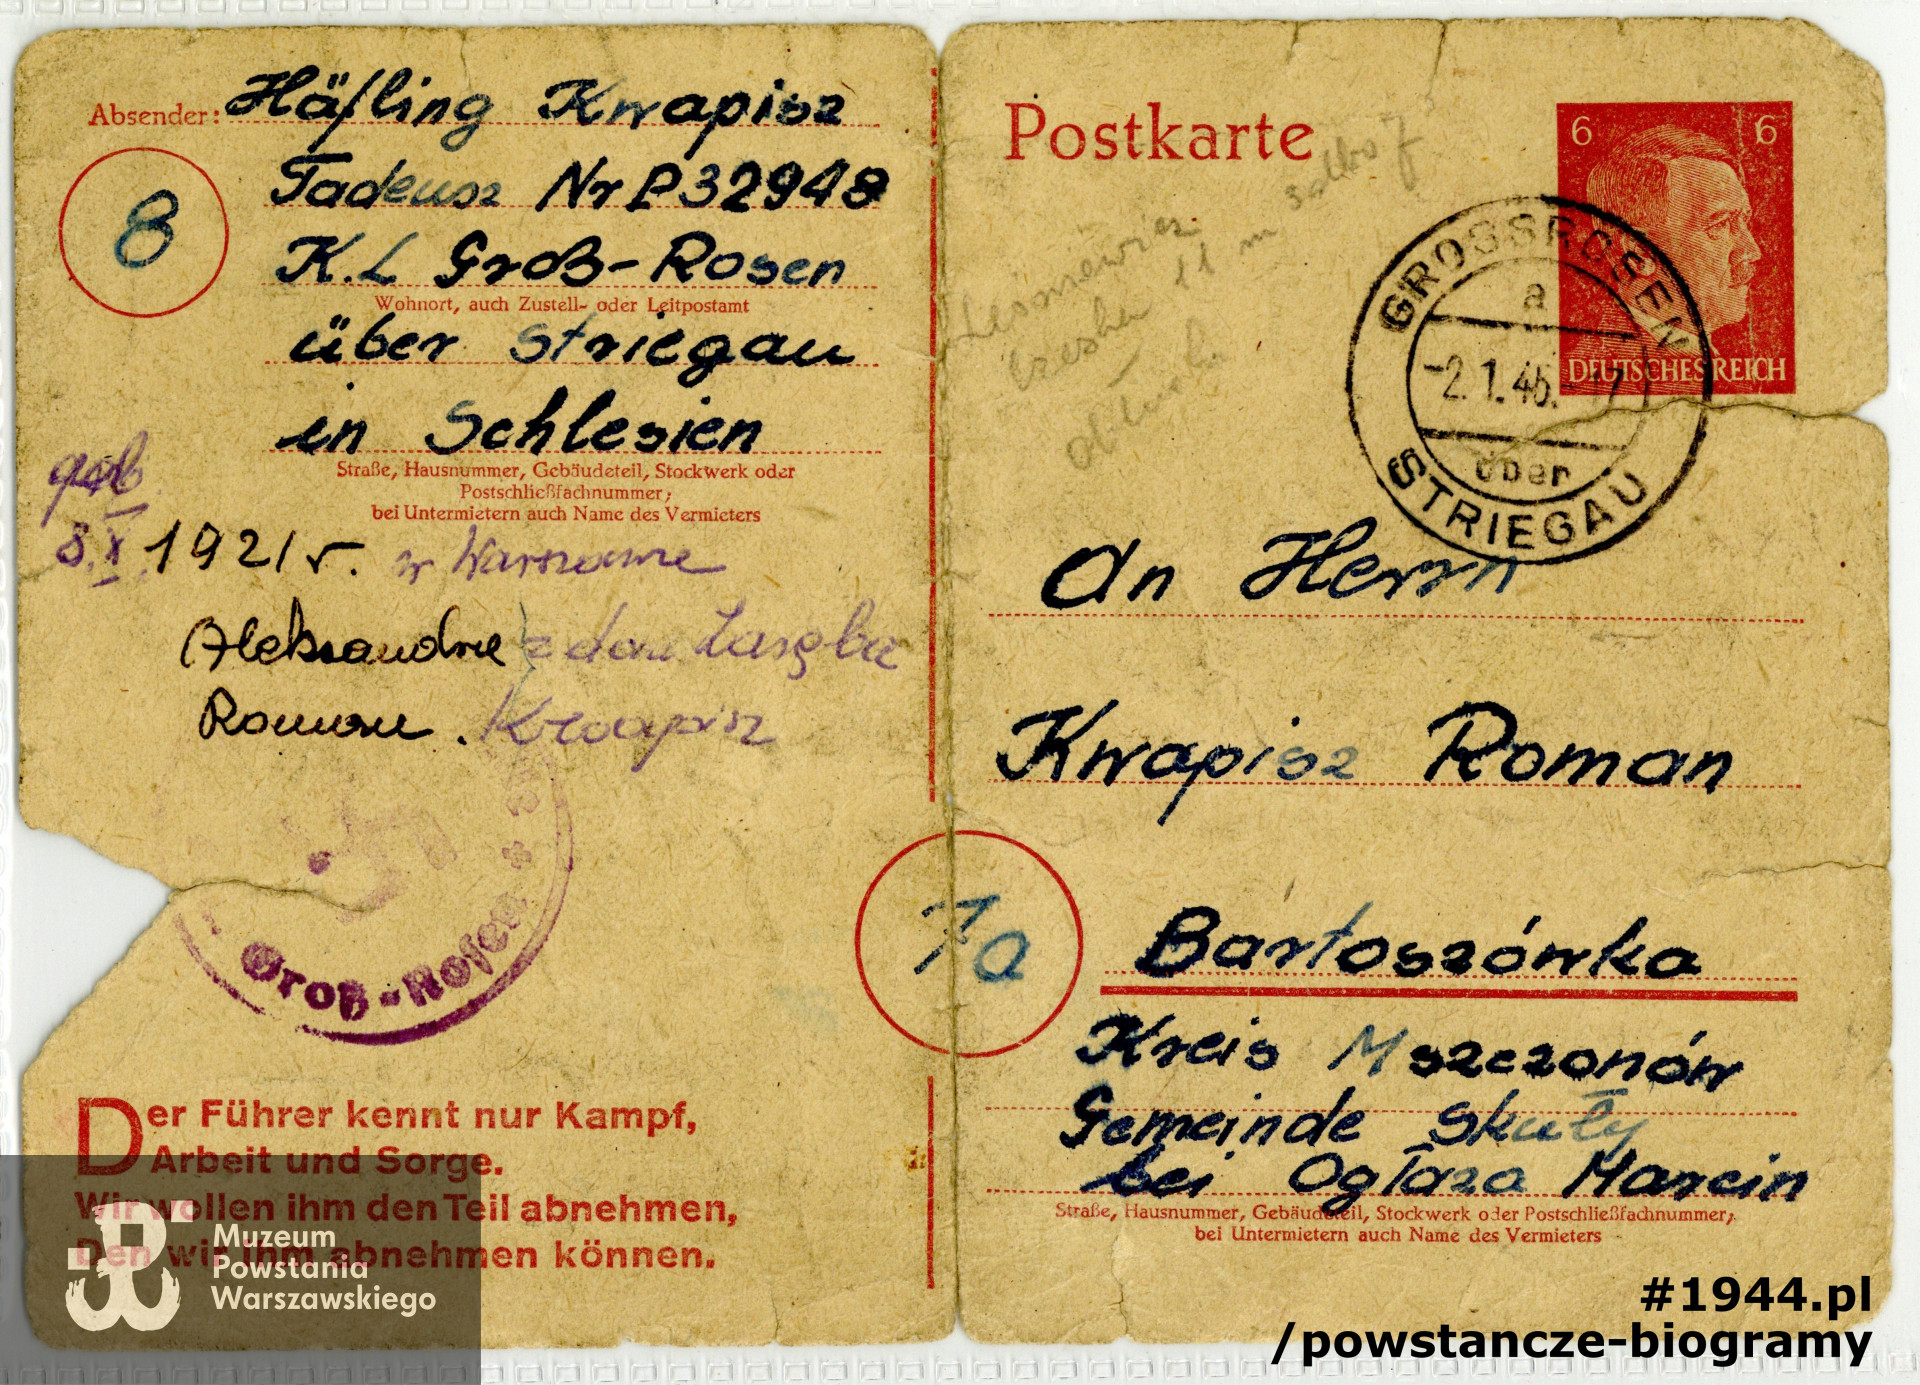 Absender: Häfling Kwapisz
8
Tadeusz Nr P 32948
K.L Groß-Rosen
Wohnort, auch Zustell- oder Leitpostamt
über Striegau
in Schlesien
Straße, Hausnummer, Gebäudeteil, Stockwerk oder
Postschließfachnummer;
bei Untermietern auch Name des Vermieters
8.X.1921 r. w Warszawie
Aleksandra z domu
Roman. Kwapisz
Groß-Rosen
Der Führer kennt nur Kampf,
Arbeit und Sorge.
Wir wollen ihm den Teil abnehmen,
Den wir ihm abnehmen können.
Muzeum
Powstania
Warszawskiego
Postkarte
6 6
DEUTSCHES REICH
GROSSROSEN
a
-2.1.45.-17
über
STRIEGAU
An Herrn
Kwapisz Roman
7a
Bartoszówka
Kreis Mszczonów
Gemeinde Skuły
bei Ogłaza Marcin
Straße, Hausnummer, Gebäudeteil, Stockwerk oder Postschließfachnummer;
bei Untermietern auch Name des Vermieters
#1944.pl
/powstancze-biogramy